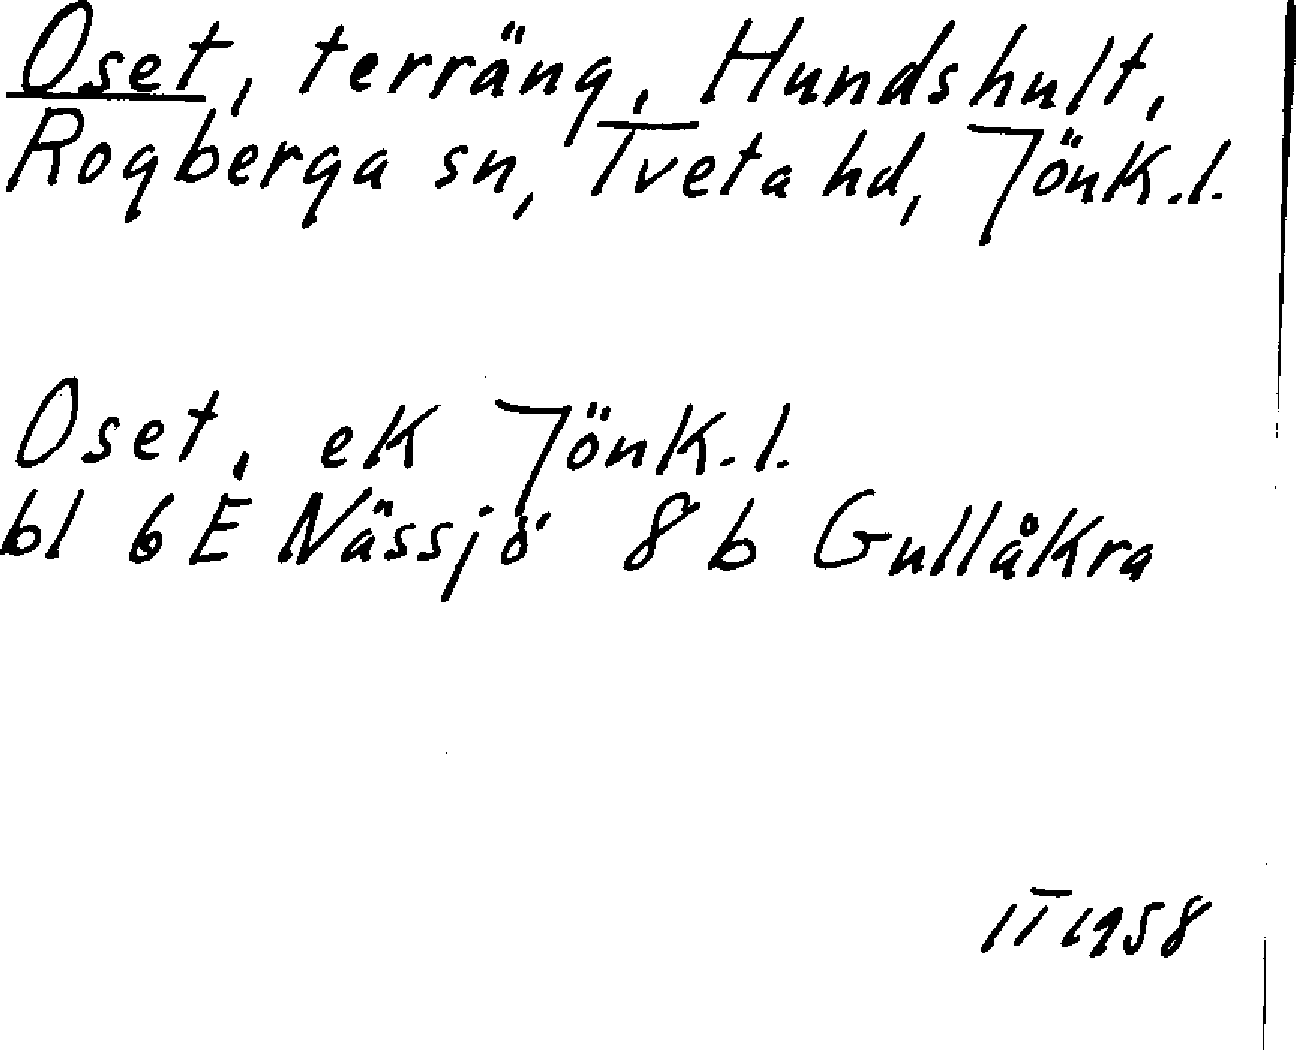 Oset, terräng, Hundshult,
Rogberga sn, Tveta hd, Jönk.l.
Oset, ek Jönk.l.
bl 6E Nässjö 8 b Gullåkra
IT 1958